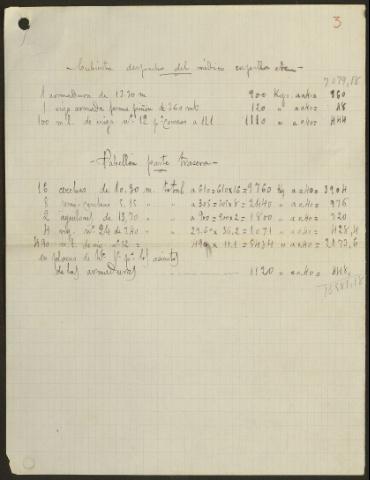 3
- Cubierta despacho del médico capilla etc -
7079,18
1 armadura de 13.30 m 900 Kgs. a 0.40 = 360
1 viga armada forma piñon de 360 mts 120 " a 0.40 = 48
100 m.l. de viga nº 12 pª correas a 11.1 1110 " a 0.40 = 444
- Pabellón parte trasera -
16 cerchas de 10.30 m. total a 610 = 610 x 16 = 9760 Kg a 0.40 = 3904
8 semi-cerchas 5.15 " " a 305 = 305 x 8 = 2440 " a 0.40 = 976
2 aguilones de 13,70 " " a 900 = 900 x 2 = 1800 " a 0.40 = 720
4 vig. nº 24 de 7.40 " " 29.6 x 36,2 = 1071 " a 0.40 = 428,4
490 m.l. de vig. nº 12 = 490 x 11.1 = 5434 " a 0.40 = 2173,6
en placas de pª los asientos
de las armaduras 1120 " a 0.40 = 448,